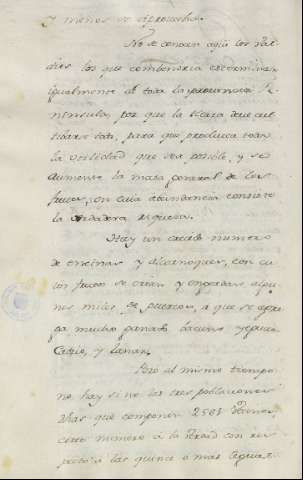 y menos se aprovecha.
No se conocen aqui los Val-
dios los que combendria exterminar
igualmente de toda la provincia
Peninsula, por que la tierra deve cul-
tibarse toda, para que produzca toda
la utilidad que sea posible, y se
aumente la masa general de los
frutos, en cuia abundancia consiste
la verdadera riqueza.
Hay un crecido numero
de encinas y alcornoques, con cu-
ios frutos se crian y engordan algu-
nos miles de puercos, a que se agre-
ga mucho ganado bacuno yeguar
Cabrio, y lanar.
Pero al mismo tiempo
no hay si no las tres poblaciones
dhas que componen 2501 vecinos,
corto numero a la verdad con res-
pecto a las quince o mas leguas